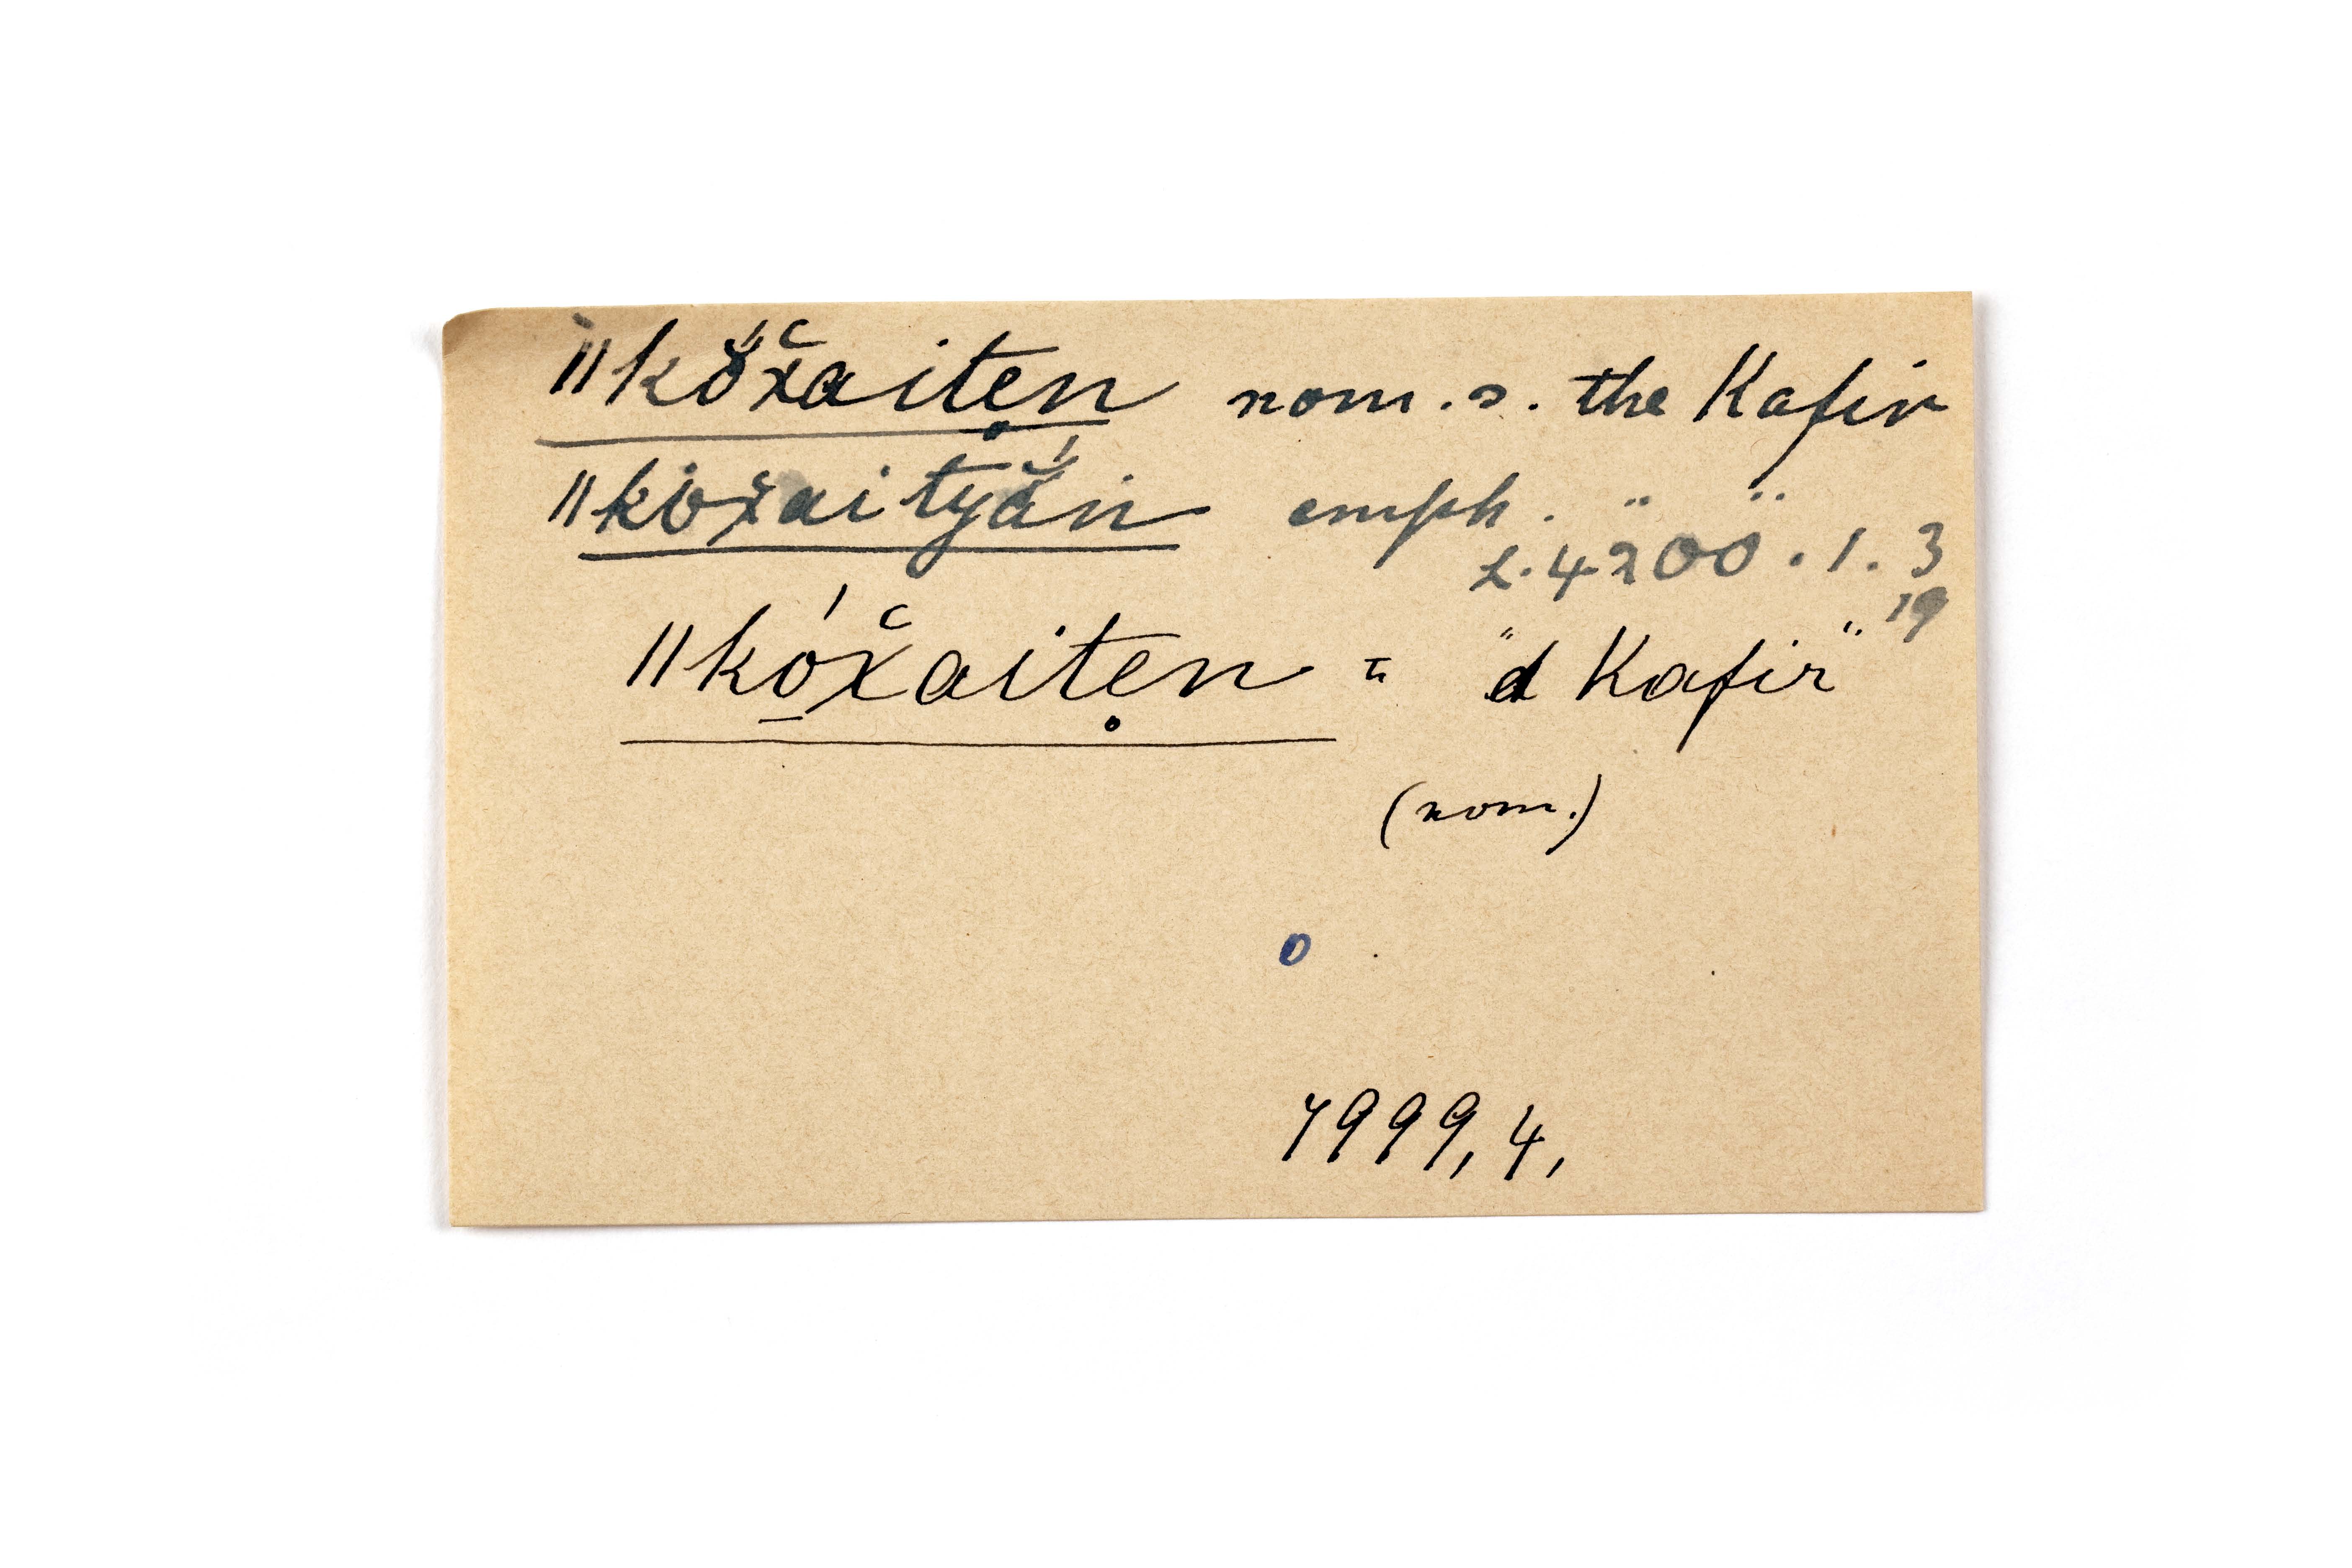 ǁkŏ́x̌aitẹn nom. s. the Kafir
ǁkóx̌aityắn emph. " "
L. 4200. 1. 3
19
ǁkó̱x̌aitẹn = "d Kafir"
(nom.)
0
7999, 4,